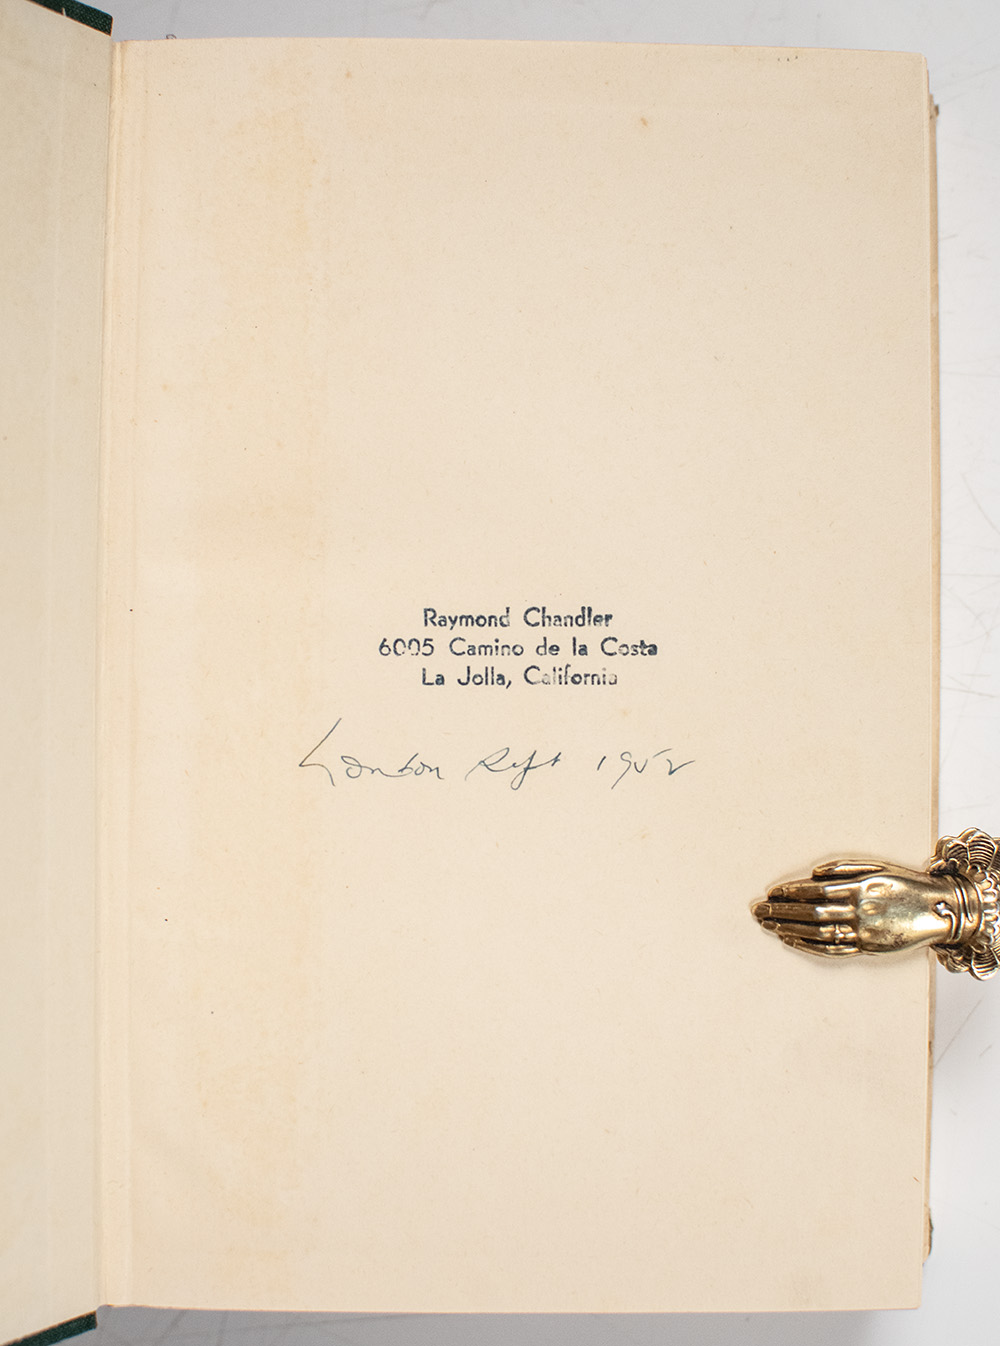 Raymond Chandler
6005 Camino de la Costa
La Jolla, California
London Sept 1952